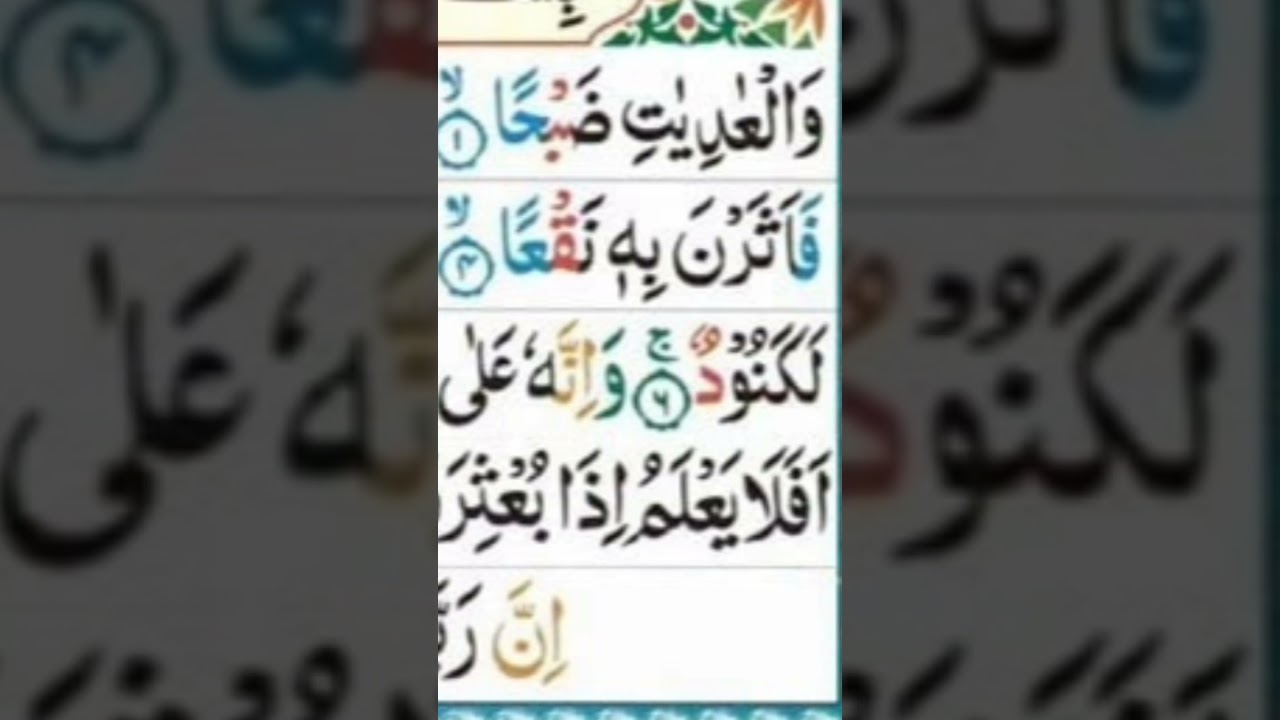 وَالْعٰدِيٰتِ ضَبْحًا ۙ ۱
فَاَثَرْنَ بِهٖ نَقْعًا ۙ ۴
لَكَنُوْدٌ ۚ ۶ وَاِنَّهٗ عَلٰى
اَفَلَا يَعْلَمُ اِذَا بُعْثِرَ
اِنَّ